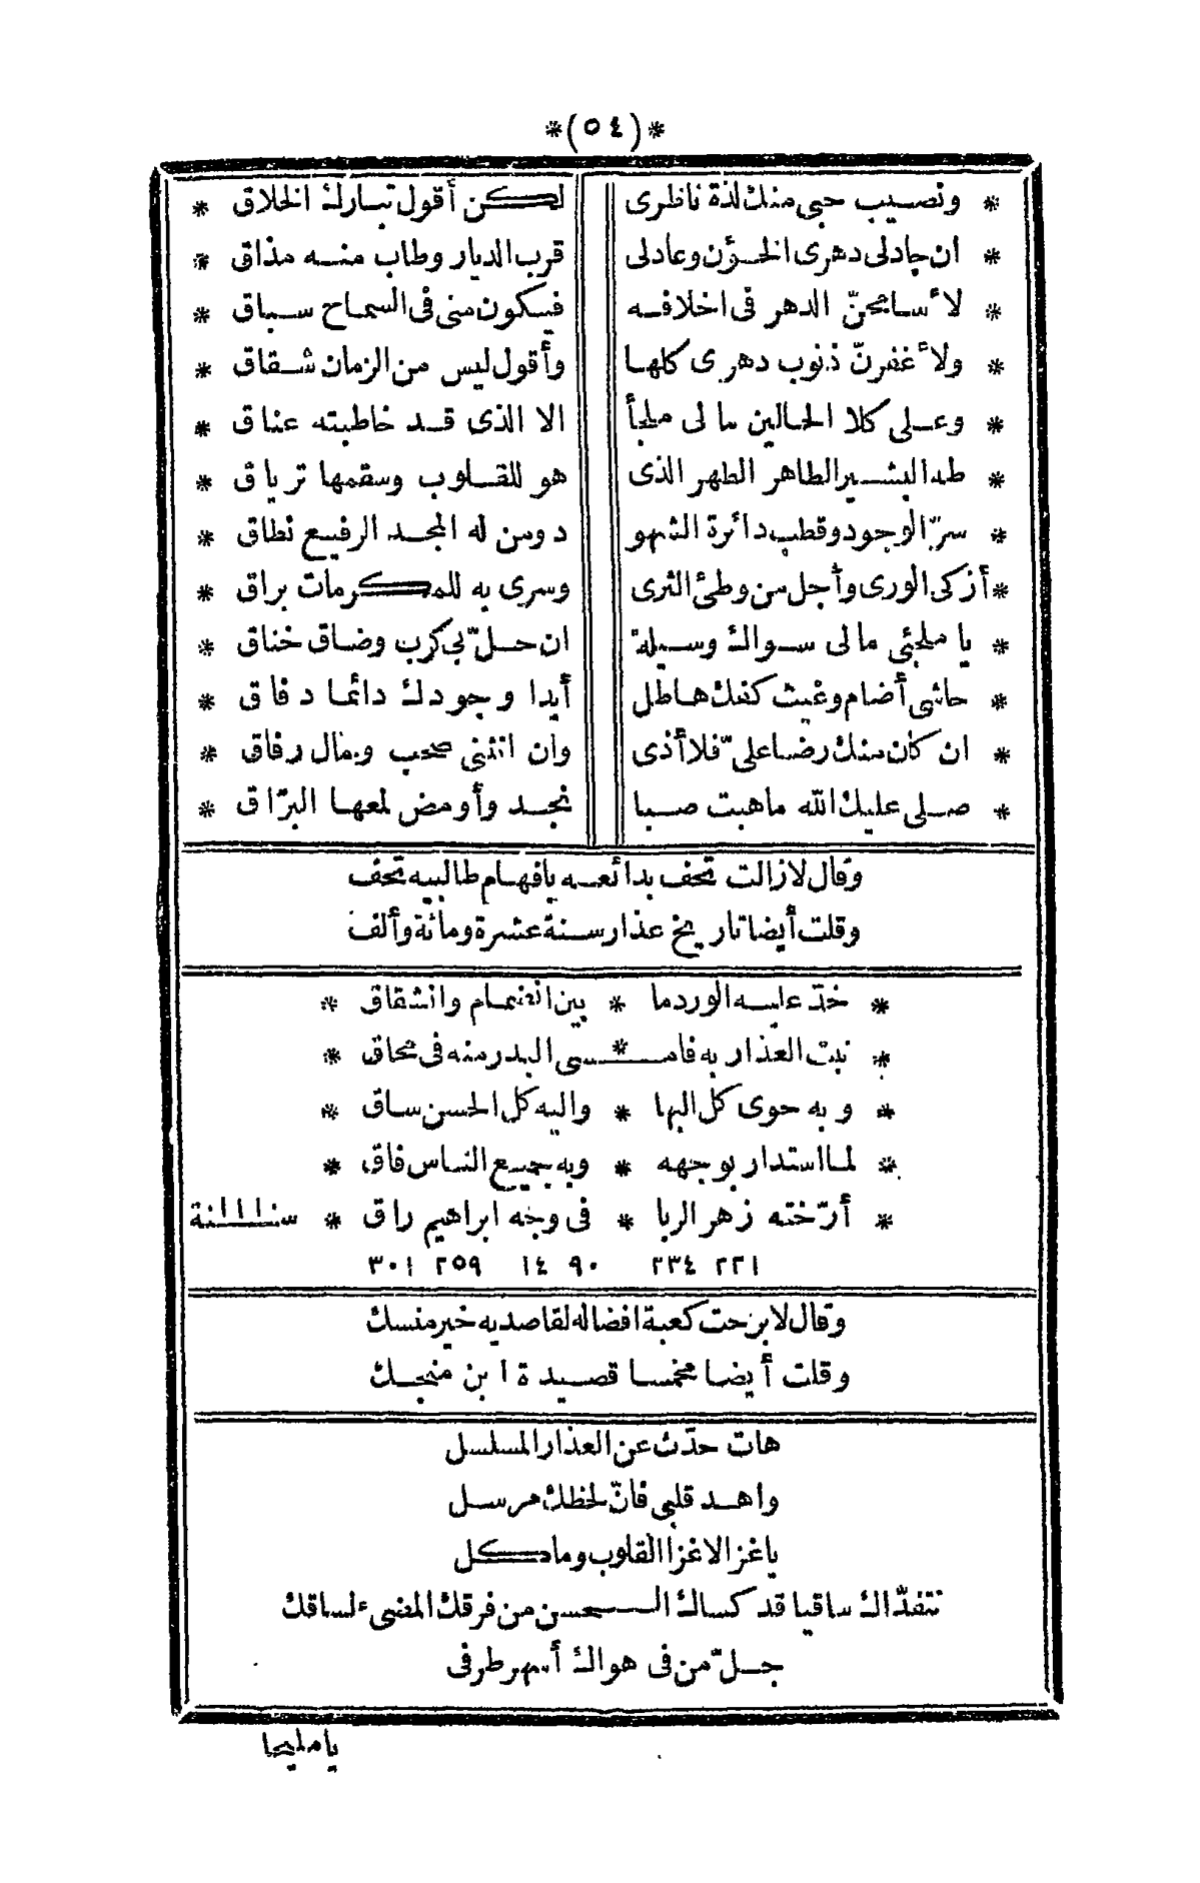 *(٥٤)*
* ونصيب حبى منك لذة ناظرى لكن أقول تبارك الخلاق *
* ان جادلى دهرى الخؤن وعادلى قرب الديار وطاب منه مذاق *
* لأسامحنّ الدهر فى اخلافه فيكون منى فى السماح سباق *
* ولأغفرنّ ذنوب دهرى كلها وأقول ليس من الزمان شقاق *
* وعلى كلا الحالين ما لى ملجأ الا الذى قد خاطبته عناق *
* طه البشير الطاهر الطهر الذى هو للقلوب وسقمها ترياق *
* سرّ الوجود وقطب دائرة الشهو د ومن له المجد الرفيع نطاق *
* أزكى الورى وأجل من وطئ الثرى وسرى به للمكرمات براق *
* يا ملجئى ما لى سواك وسيلة ان حلّ بى كرب وضاق خناق *
* حاشى أضام وغيث كفك هاطل أبدا وجودك دائما دفاق *
* ان كان منك رضا علىّ فلا أذى وان انثنى صحب ومال رفاق *
* صلى عليك الله ماهبت صبا نجد وأومض لمعها البرّاق *
وقال لازالت تحف بدائعه بافهام طالبيه تحف
وقلت أيضا تاريخ عذار سنة عشرة ومائة وألف
* خدّ عليه الورد ما * بين انضمام وانشقاق *
* نبت العذار به فامـ * ـسى البدر منه فى محاق *
* وبه حوى كل البها * واليه كل الحسن ساق *
* لما استدار بوجهه * وبه جميع الناس فاق *
* أرّخته زهر الربا * فى وجه ابراهيم راق * سنة ١١١١
٢٢١ ٢٣٤ ٩٠ ١٤ ٢٥٩ ٣٠١
وقال لا برحت كعبة افضاله لقاصديه خير منسك
وقلت أيضا مخمسا قصيدة ابن منجك
هات حدّث عن العذار المسلسل
واهد قلبى فانّ لحظك مرسل
يا غزالا غزا القلوب وما كل
تتفدّاك ساقيا قد كساك الـحسن من فرقك المضىء لساقك
جلّ من فى هواك أسهر طرفى
يا مليحا